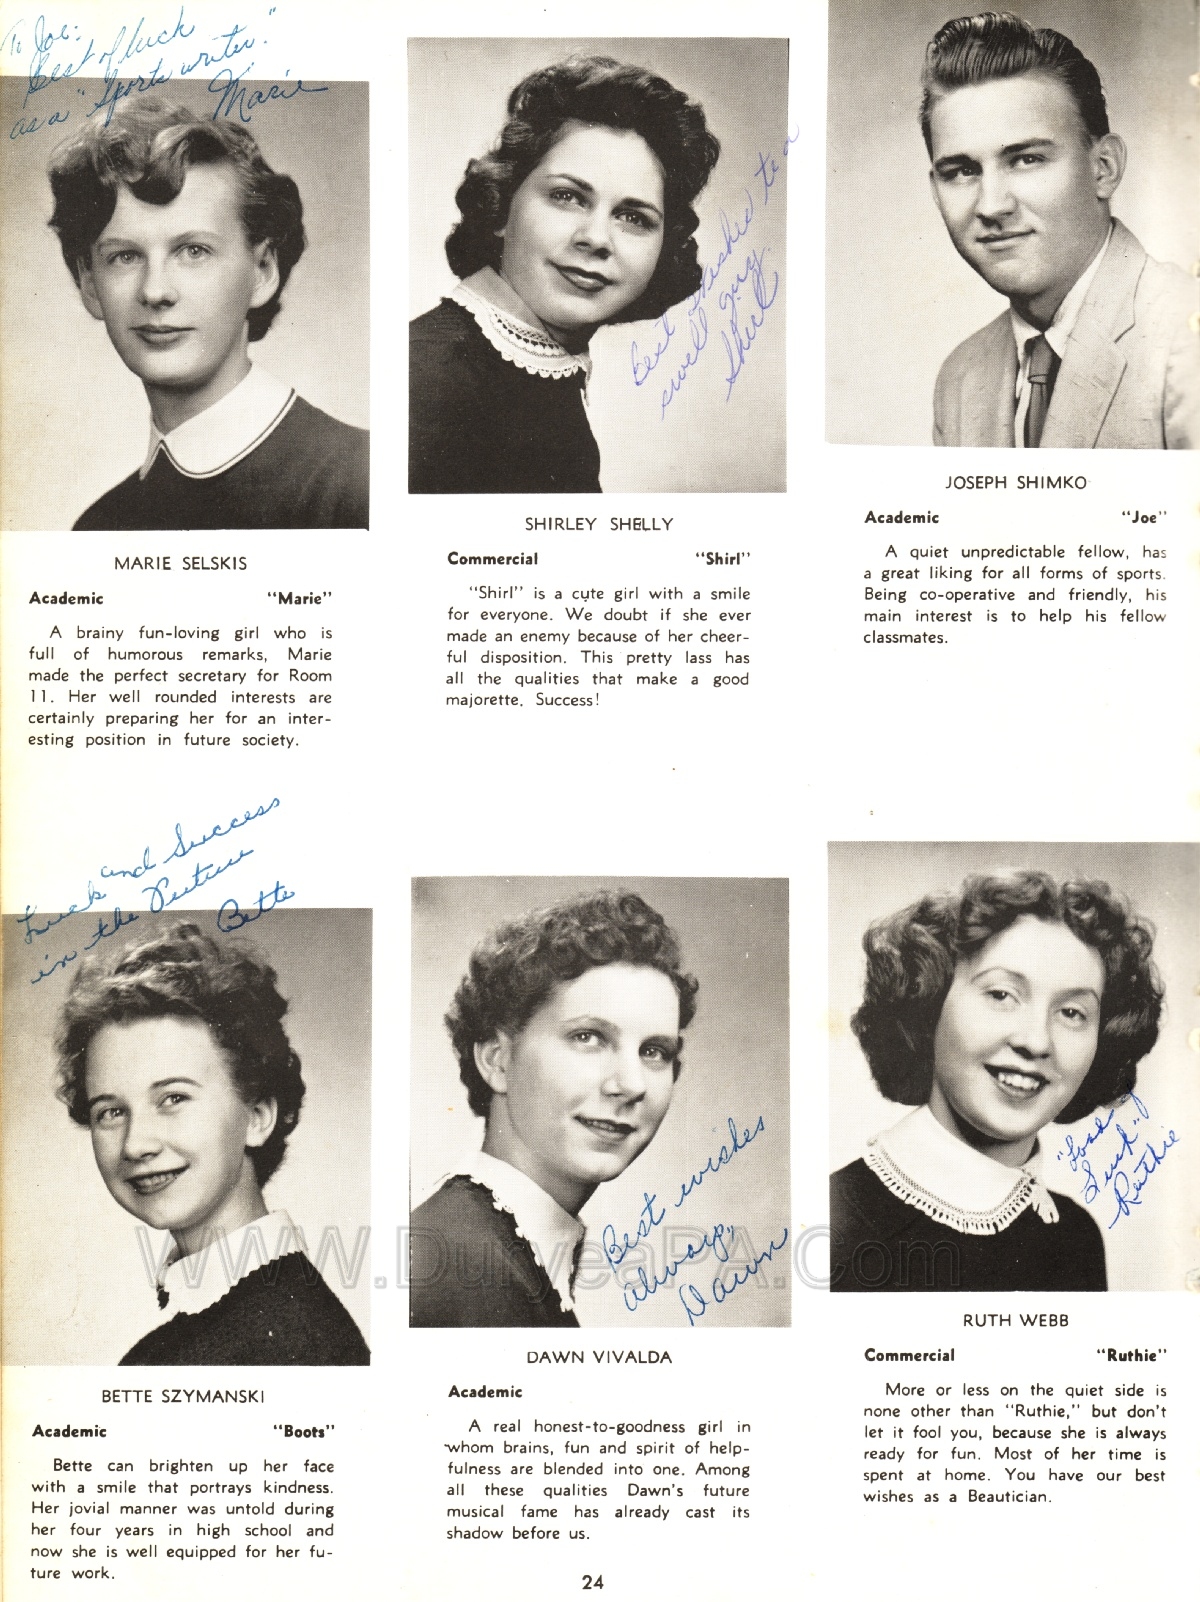 To Joe:
Best of luck
as a "Sports writer."
Marie
Best Wishes to a
swell guy.
Shirl
MARIE SELSKIS
Academic "Marie"
A brainy fun-loving girl who is
full of humorous remarks, Marie
made the perfect secretary for Room
11. Her well rounded interests are
certainly preparing her for an inter-
esting position in future society.
SHIRLEY SHELLY
Commercial "Shirl"
"Shirl" is a cute girl with a smile
for everyone. We doubt if she ever
made an enemy because of her cheer-
ful disposition. This pretty lass has
all the qualities that make a good
majorette. Success!
JOSEPH SHIMKO
Academic "Joe"
A quiet unpredictable fellow, has
a great liking for all forms of sports.
Being co-operative and friendly, his
main interest is to help his fellow
classmates.
Luck and Success
in the Future
Bette
Best wishes
always,
Dawn
"Good
Luck"
Ruthie
WWW.DuryeaPA.Com
BETTE SZYMANSKI
Academic "Boots"
Bette can brighten up her face
with a smile that portrays kindness.
Her jovial manner was untold during
her four years in high school and
now she is well equipped for her fu-
ture work.
DAWN VIVALDA
Academic
A real honest-to-goodness girl in
whom brains, fun and spirit of help-
fulness are blended into one. Among
all these qualities Dawn's future
musical fame has already cast its
shadow before us.
RUTH WEBB
Commercial "Ruthie"
More or less on the quiet side is
none other than "Ruthie," but don't
let it fool you, because she is always
ready for fun. Most of her time is
spent at home. You have our best
wishes as a Beautician.
24